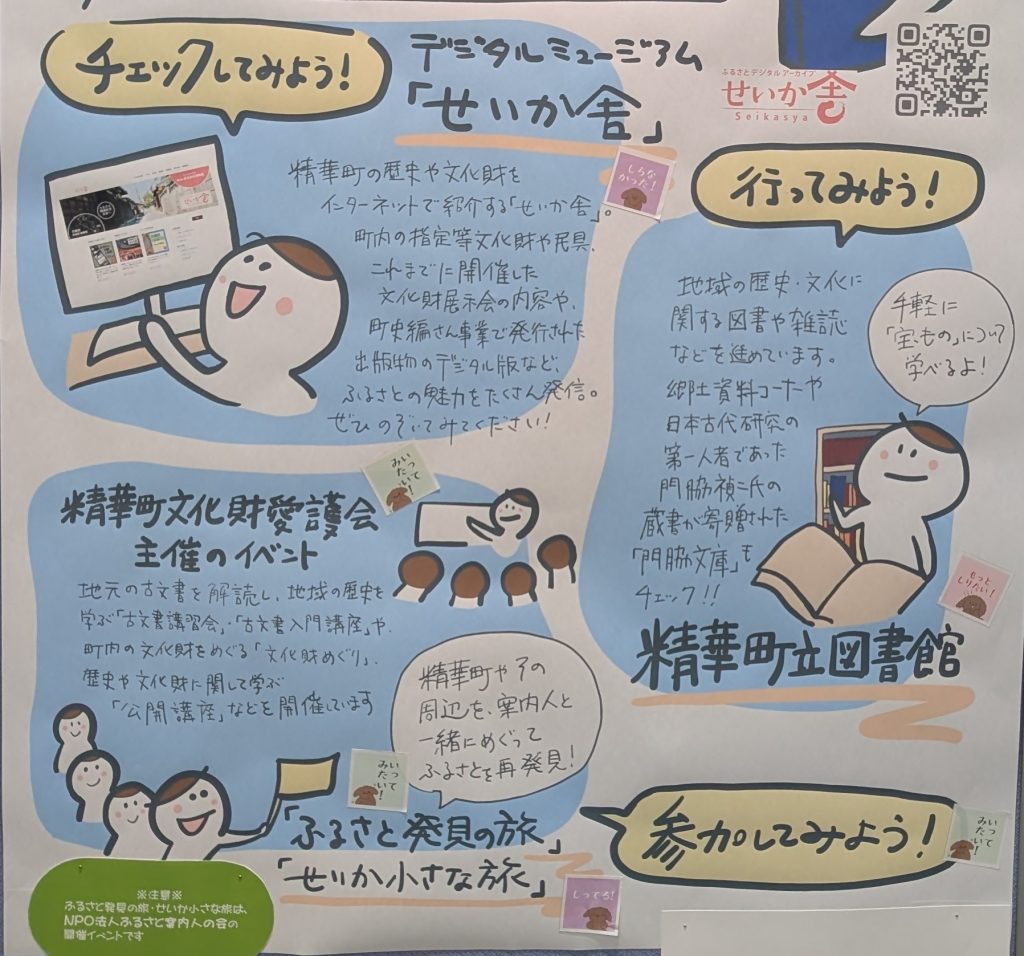 チェックしてみよう!
デジタルミュージアム
「せいか舎」
ふるさとデジタルアーカイブ
せいか舎
Seikasya
精華町の歴史や文化財を
インターネットで紹介する「せいか舎」。
町内の指定等文化財や民具、
これまでに開催した
文化財展示会の内容や、
町史編さん事業で発行された
出版物のデジタル版など、
ふるさとの魅力をたくさん発信。
ぜひのぞいてみてください!
しらな
かった!
行ってみよう!
地域の歴史・文化に
関する図書や雑誌
などを進めています。
郷土資料コーナーや
日本古代研究の
第一人者であった
門脇禎二氏の
蔵書が寄贈された
「門脇文庫」も
チェック!!
手軽に
「宝もの」について
学べるよ!
もっと
しりたい!
精華町立図書館
いって
みたい!
精華町文化財愛護会
主催のイベント
地元の古文書を解読し、地域の歴史を
学ぶ「古文書講習会」・「古文書入門講座」や、
町内の文化財をめぐる「文化財めぐり」、
歴史や文化財に関して学ぶ
「公開講座」などを開催しています
精華町やその
周辺を、案内人と
一緒にめぐって
ふるさとを再発見!
いって
みたい!
「ふるさと発見の旅」
「せいか小さな旅」
しってる!
参加してみよう!
いって
みたい!
※注意※
ふるさと発見の旅・せいか小さな旅は、
NPO法人ふるさと案内人の会の
開催イベントです